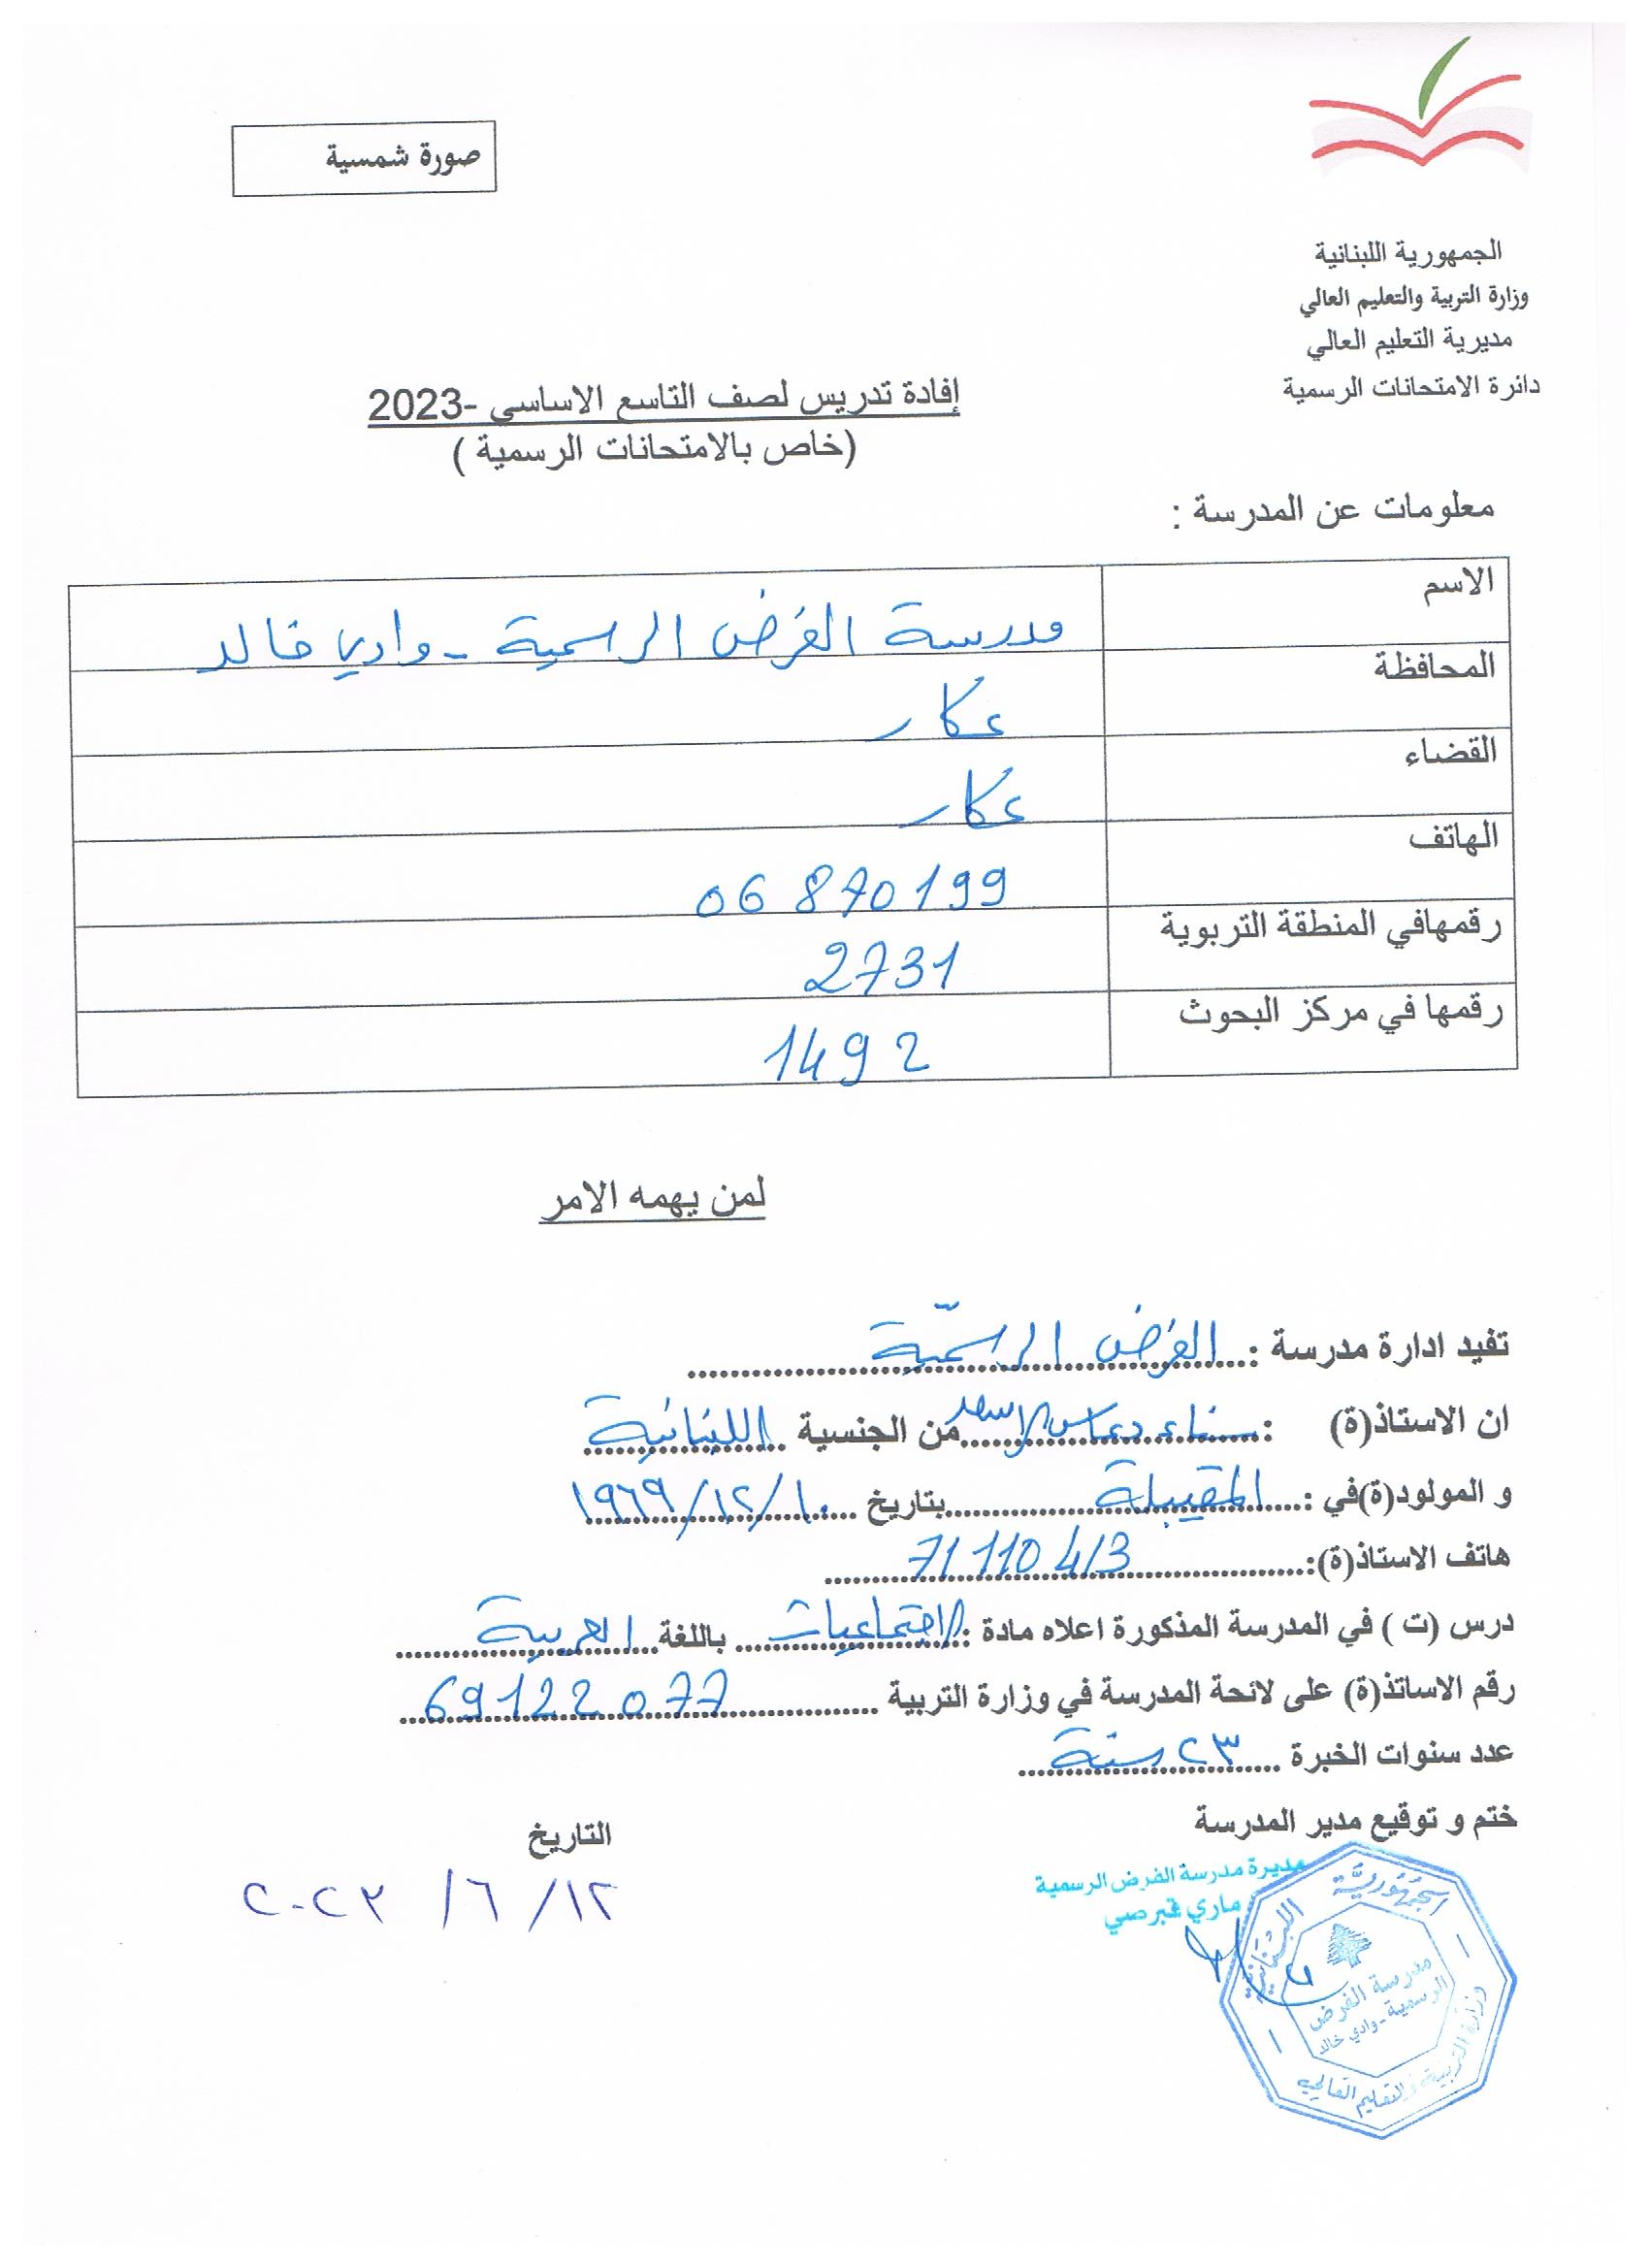 صورة شمسية
الجمهورية اللبنانية
وزارة التربية والتعليم العالي
مديرية التعليم العالي
دائرة الامتحانات الرسمية
إفادة تدريس لصف التاسع الاساسي -2023
(خاص بالامتحانات الرسمية )
معلومات عن المدرسة :
الاسم مدرسة الفرض الرسمية - وادي خالد
المحافظة عكار
القضاء عكار
الهاتف 06 870199
رقمهافي المنطقة التربوية 2731
رقمها في مركز البحوث 1492
لمن يهمه الامر
تفيد ادارة مدرسة : الفرض الرسميّة
ان الاستاذ(ة) : سناء دعاس الاسعد من الجنسية اللبنانية
و المولود(ة)في : المقيبلة بتاريخ ١٠/١٢/١٩٦٩
هاتف الاستاذ(ة): 71 110413
درس (ت ) في المدرسة المذكورة اعلاه مادة : الاجتماعيات باللغة العربية
رقم الاساتذ(ة) على لائحة المدرسة في وزارة التربية 69122077
عدد سنوات الخبرة ٢٣ سنة
ختم و توقيع مدير المدرسة
التاريخ
١٢/ ٦/ ٢٠٢٣
مديرة مدرسة الفرض الرسمية
ماري قبرصي
الجمهورية اللبنانية
مدرسة الفرض
الرسمية - وادي خالد
وزارة التربية والتعليم العالي